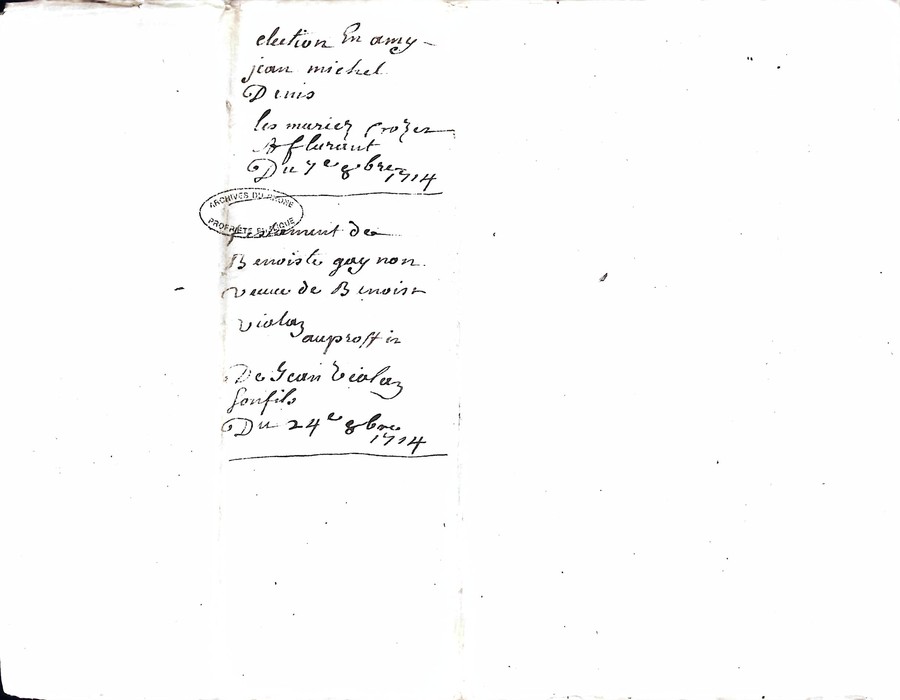 election En amy
jean michel
Denis
les mariez crozer
& flurant
Du 7e 8bre
1714
ARCHIVES DU RHONE
PROPRIÉTÉ PUBLIQUE
testament de
Benoiste gaynon
veuve de Benoist
violaz
au proffit
De Jean Violaz
son fils
Du 24e 8bre
1714